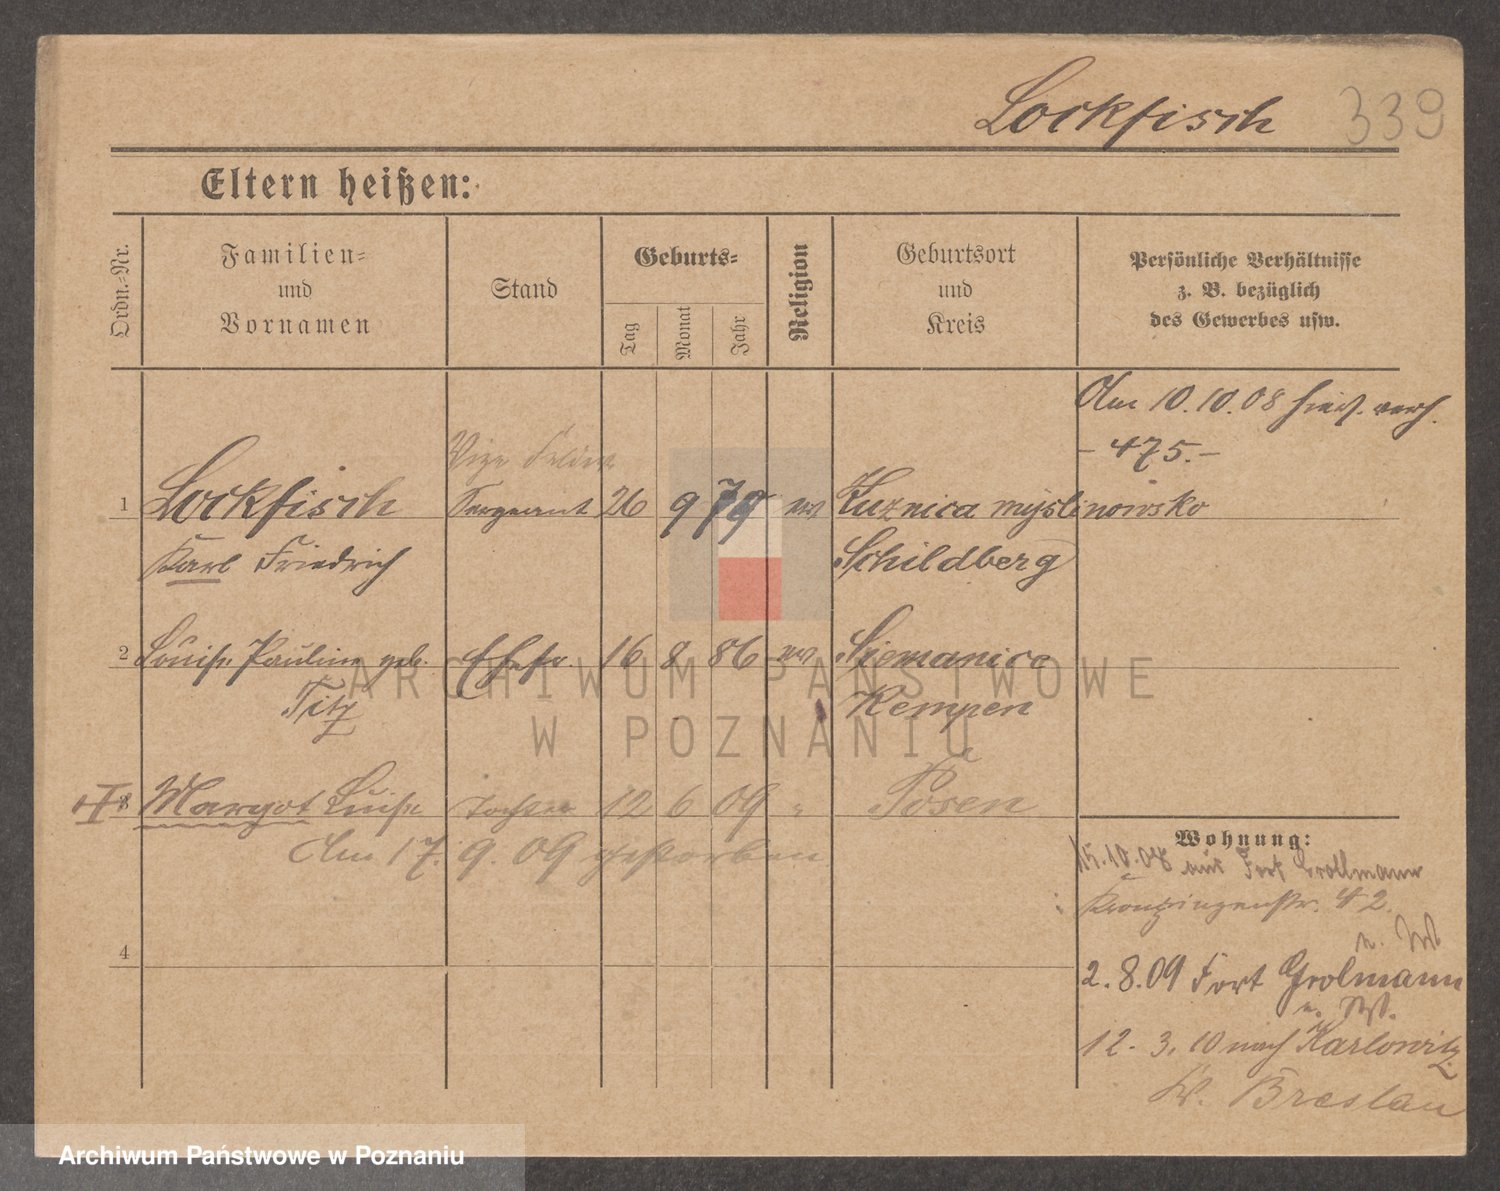 Lockfisch 339
Eltern heißen:
Ordn.-Nr.
Familien-
und
Vornamen
Stand
Geburts-
Tag
Monat
Jahr
Religion
Geburtsort
und
Kreis
Persönliche Verhältnisse
z. B. bezüglich
des Gewerbes usw.
Am 10.10.08 hier verh.
- 475.-
Vize Feldw
1 Lockfisch Sergeant 26 9 79 ev Kuznica myslinowsko
Karl Friedrich Schildberg
2 Louise Pauline geb. Ehefr. 16 8 86 ev Siemanice
Titz Kempen
3 Margot Luise Tochter 12 6 09 " Posen
Am 17. 9. 09 gestorben
4
Wohnung:
15.10.08 aus Fort Grollmann
Kronprinzenstr. 42.
2.8.09 Fort Grolmann
12. 3. 10 nach Karlowitz
Breslau
ARCHIWUM PAŃSTWOWE
W POZNANIU
Archiwum Państwowe w Poznaniu